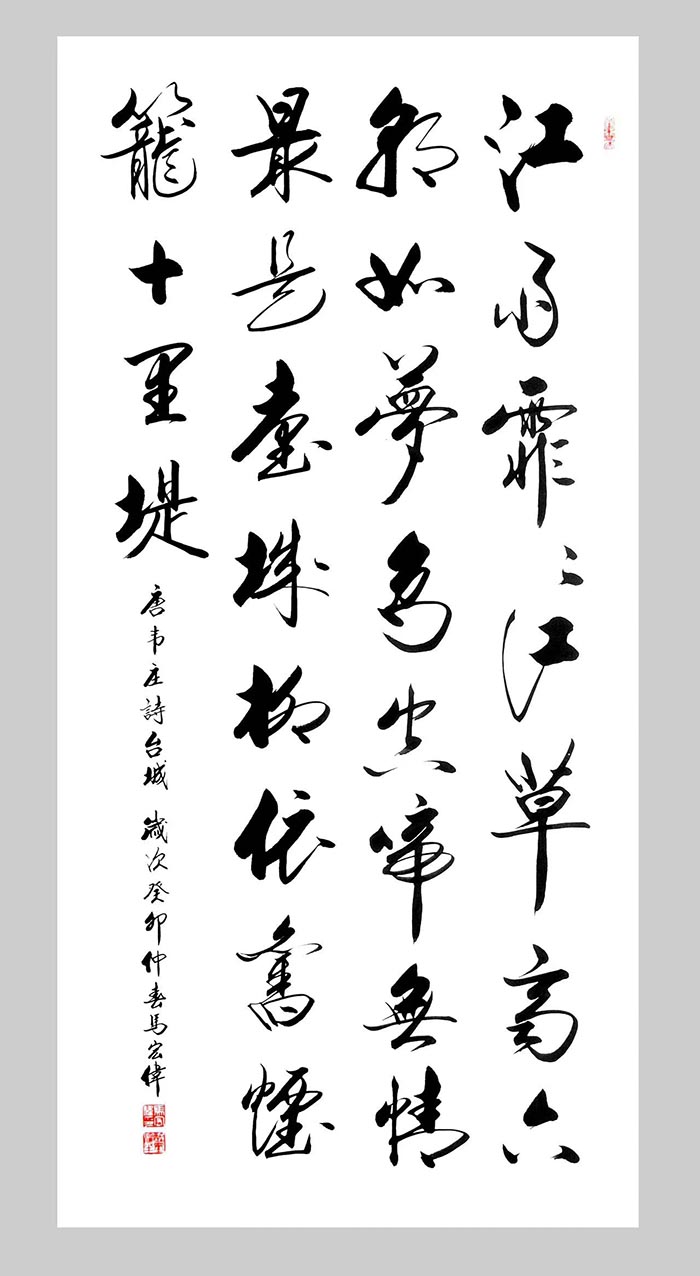 江雨霏〻江草齊六
朝如夢鳥空啼無情
最是臺城柳依舊煙
籠十里堤
唐韦庄詩台城 歲次癸卯仲春馬宏偉